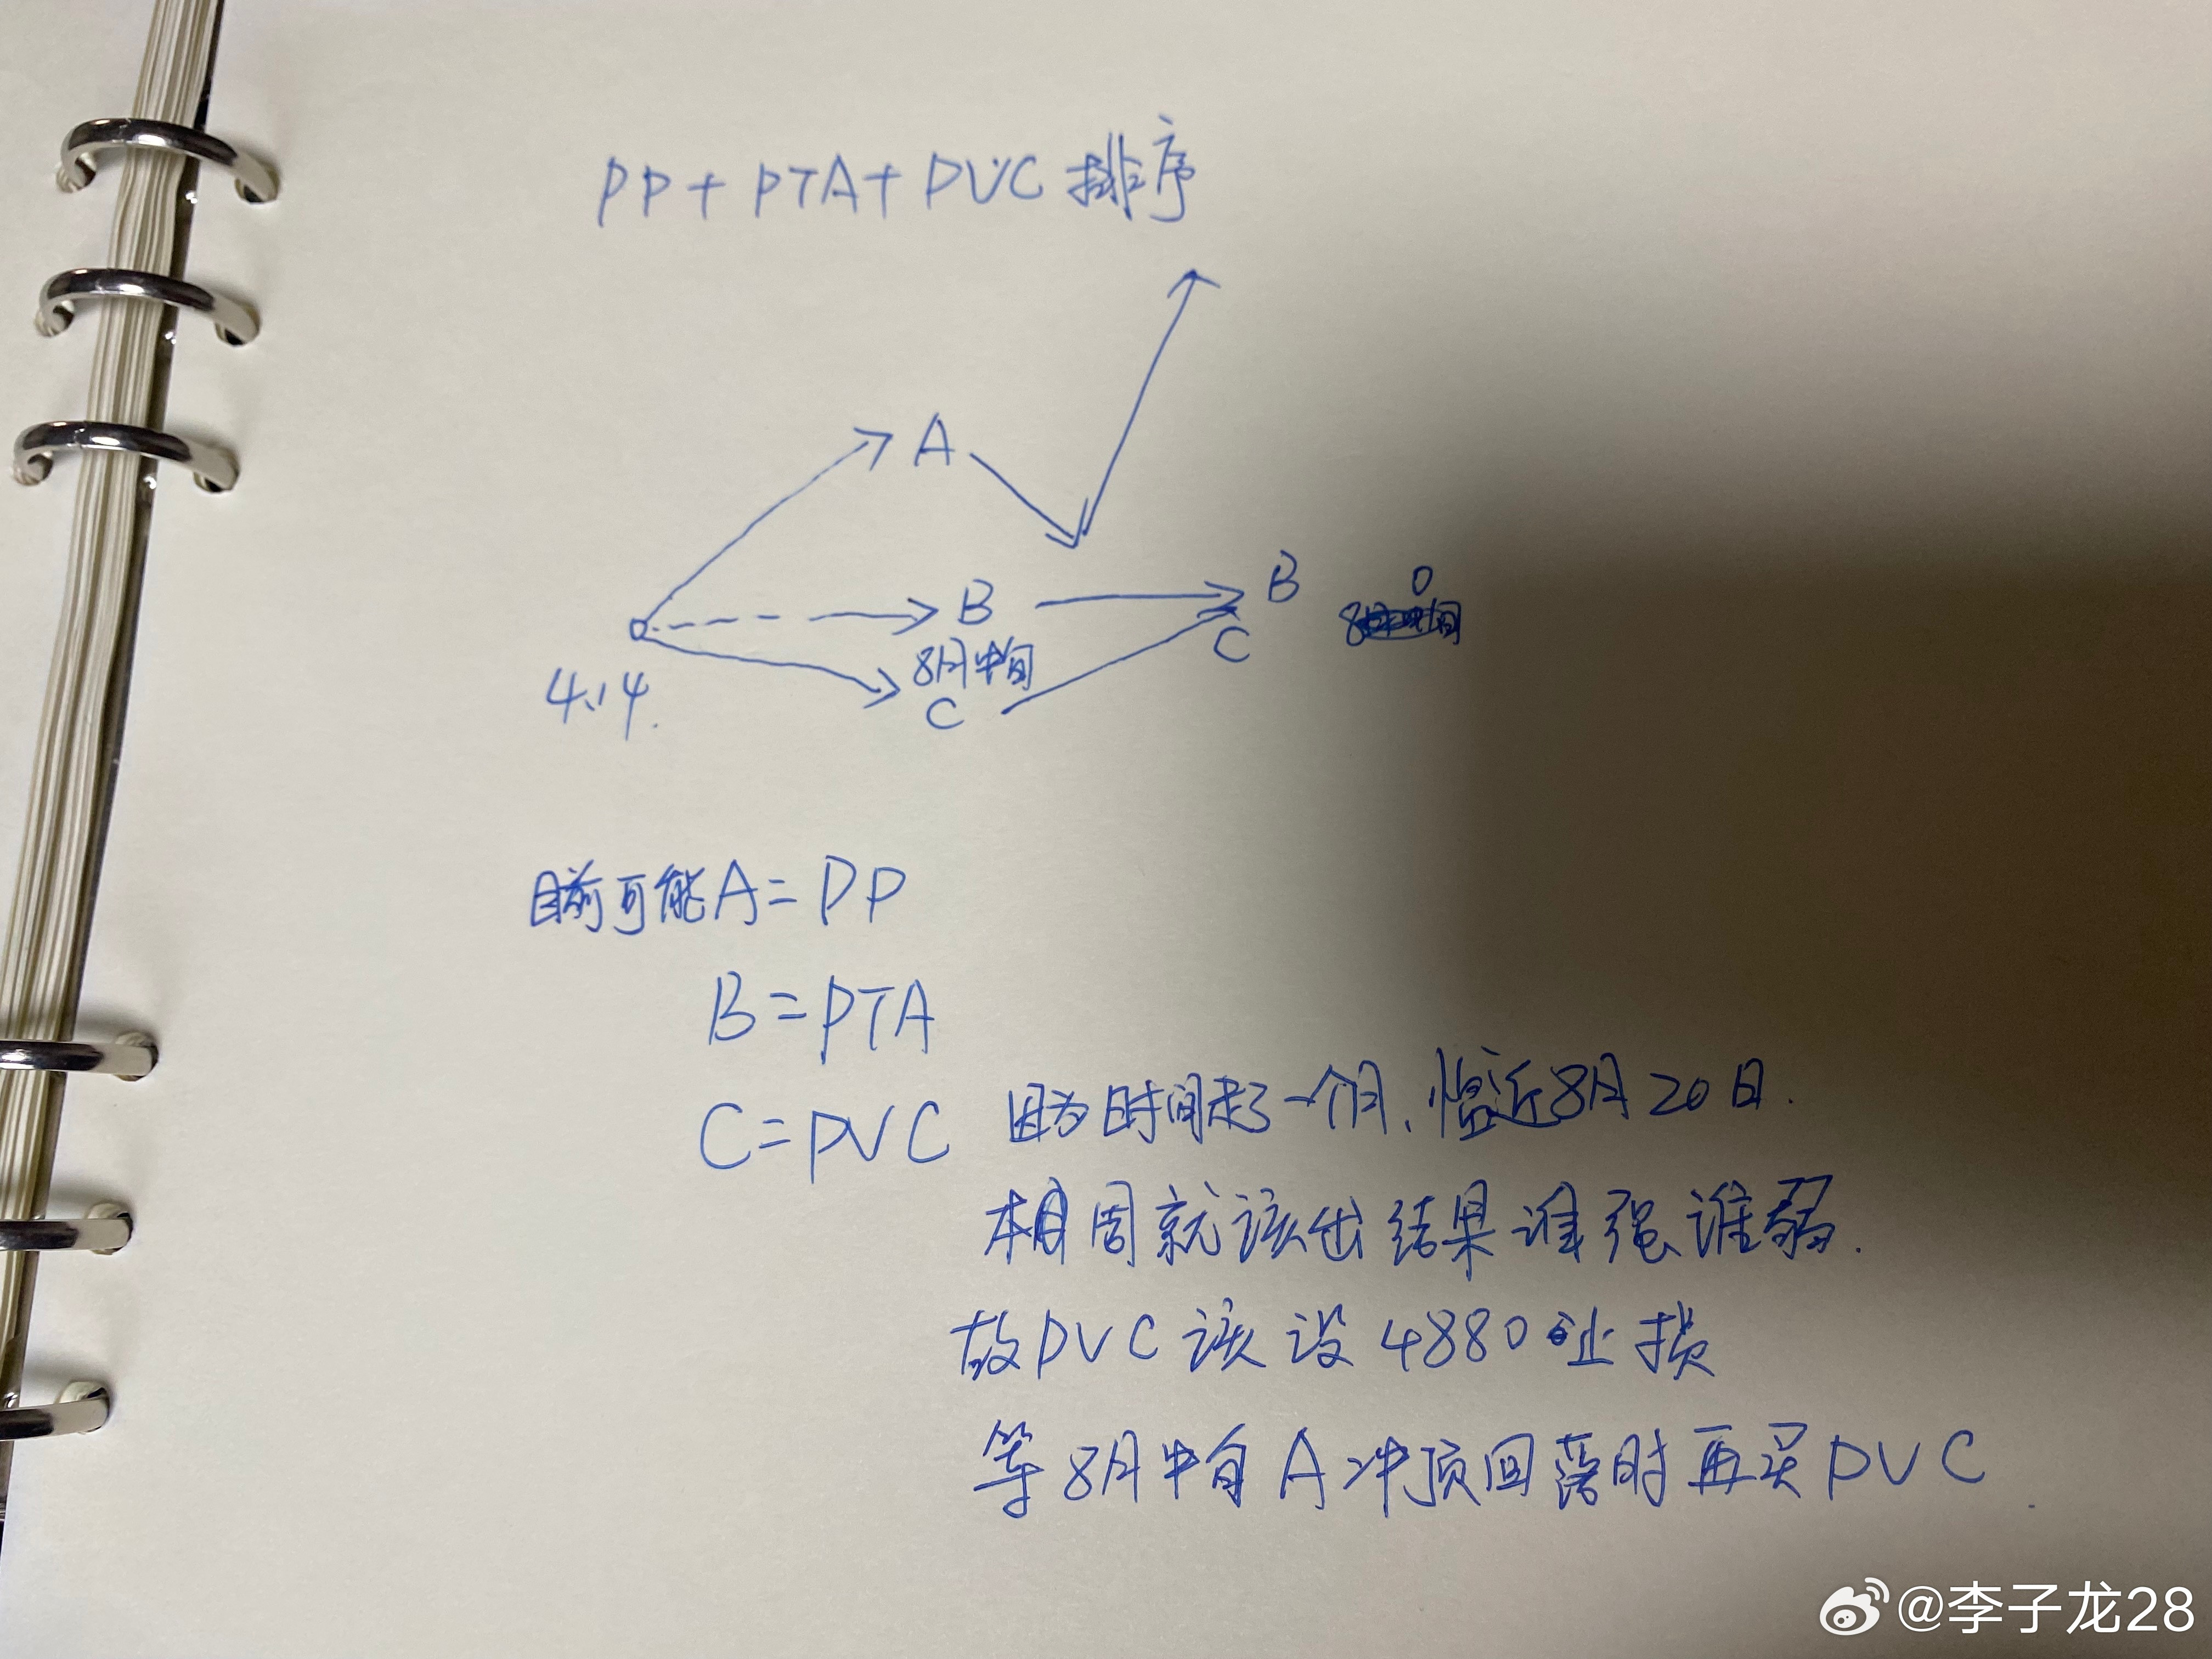 PP+PTA+PVC排序
A
B
B
0
8月中旬
C
C
4.14.
目前可能A=PP
B=PTA
C=PVC
因为时间走了一个月、临近8月20日.
本周就该出结果谁强谁弱.
故PVC该设4880止损
等8月中旬A冲顶回落时再买PVC
@李子龙28